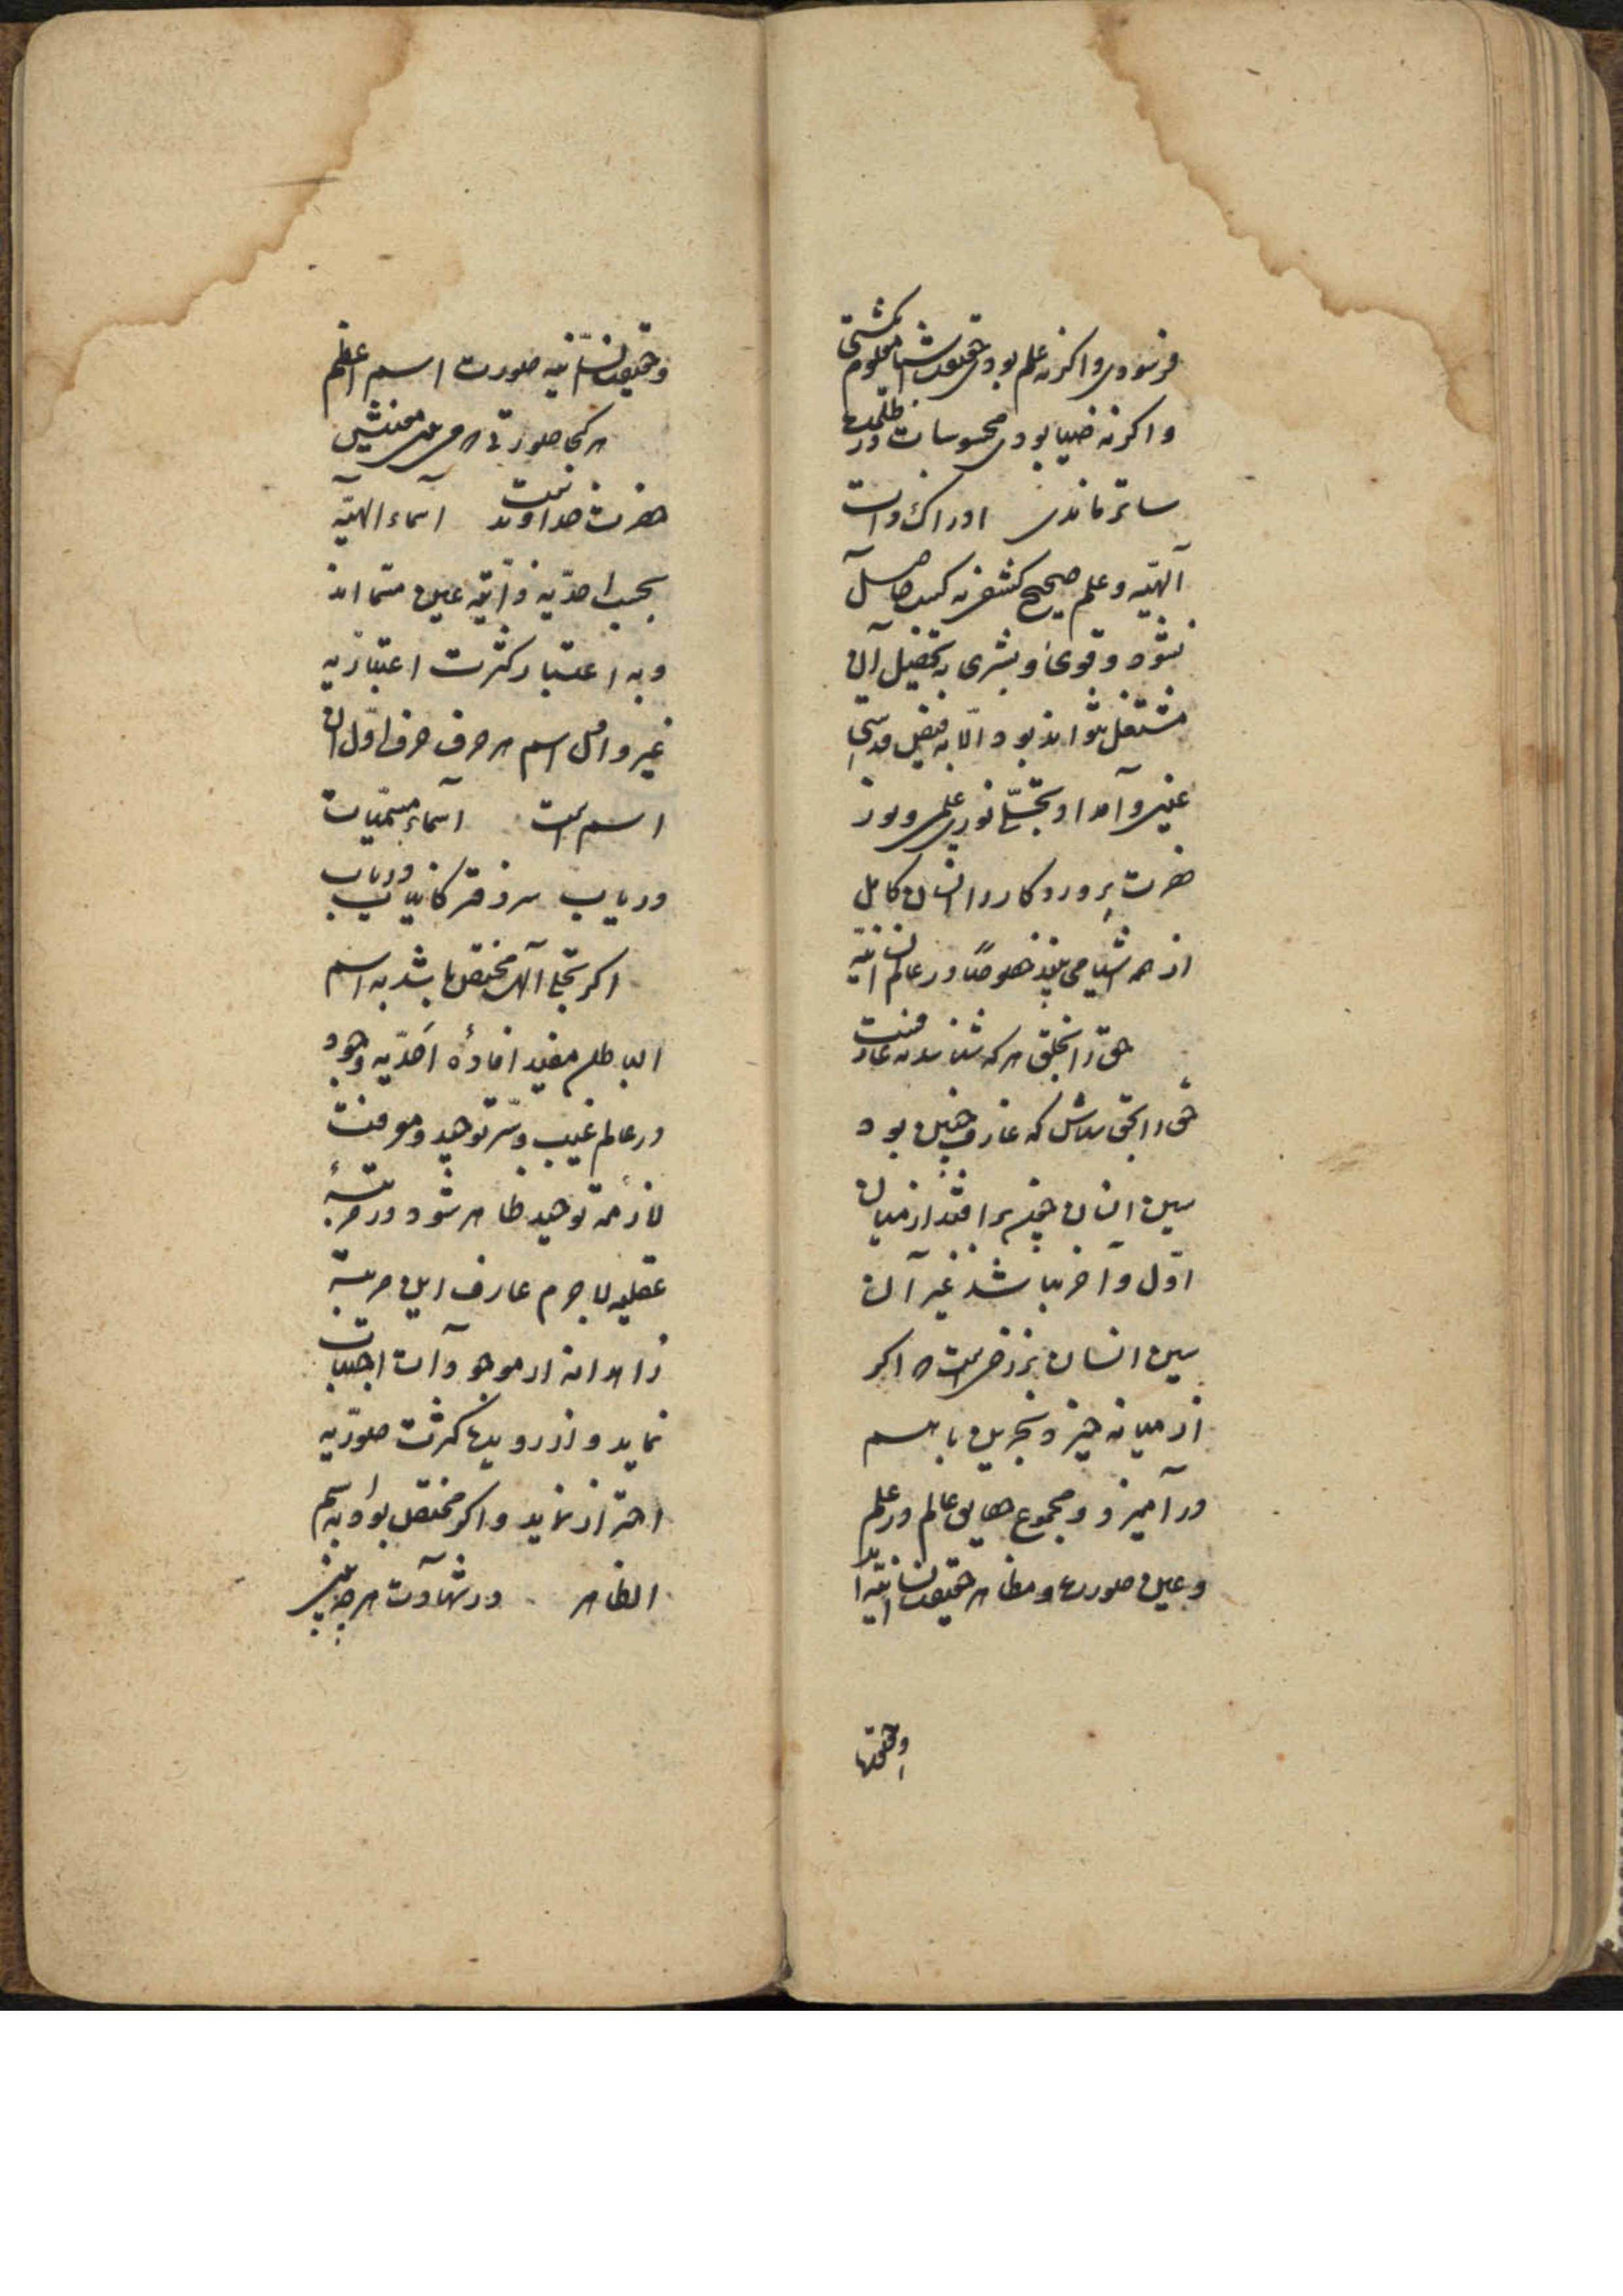 فرسودی و اگر نه علم بودی حقیقت اشیا معلوم نکشتی
و اکر نه ضیا بودی محسوسات در ظلمت
ساتر ماندی ادراک ذات
آلهیّه و علم صحیح کشفی نه کسب حاصل
نشود و قوی و بشری به تحصیل آن
مشتغل نتواند بود الّا به فیض قدسی
غیبی و آمداد تجلّی نوری علمی و نور
حضرت پروردکار را انسان کامل
از همه اشیا می بیند خصوصًا در عالم انسانیه
حق را بخلق هر که شناسد نه عارفست
حق را بحق شناس که عارف چنین بود
سین انسان چونکه برافتد از میان
اوّل و آخر نباشد غیر آن
سین انسان برزخی است ار اکر
از میانه خیزد بحرین با هم
در آمیزد و مجموع حقایق عالم در علم
و عین صورت و مظاهر حقیقت انسانیه اند
و حقیقت
و حقیقت انسانیه صورت اسم اعظم
هر کجا صورتی هر معنیش
حضرت خداوند است اسماء الهیّه
بحسب احدّیه ذاتیّه عین مسّما اند
و به اعتبار کثرت اعتباریّه
غیر و اصل اسم هر حرف حرف اوّل آن
اسم است آسماء مسمّیات
دریاب سر دفتر کاینات دریاب
اکر تجلی آلهی مختصّ باشد به اسم
الباطن مفید افادهٔ اَحدّیه وجود
در عالم غیب و سّر توحید و معرفت
لازمهٔ توحید ظاهر شود در مرتبهٔ
عقلیه لاجرم عارف این مرتبه
زاهدانه از موجودآت اجتناب
نماید و از روید كثرت صورّیه
احتراز نماید و اکر مختصّ بود به اسم
الظاهر در شهآدت هر چه بیند